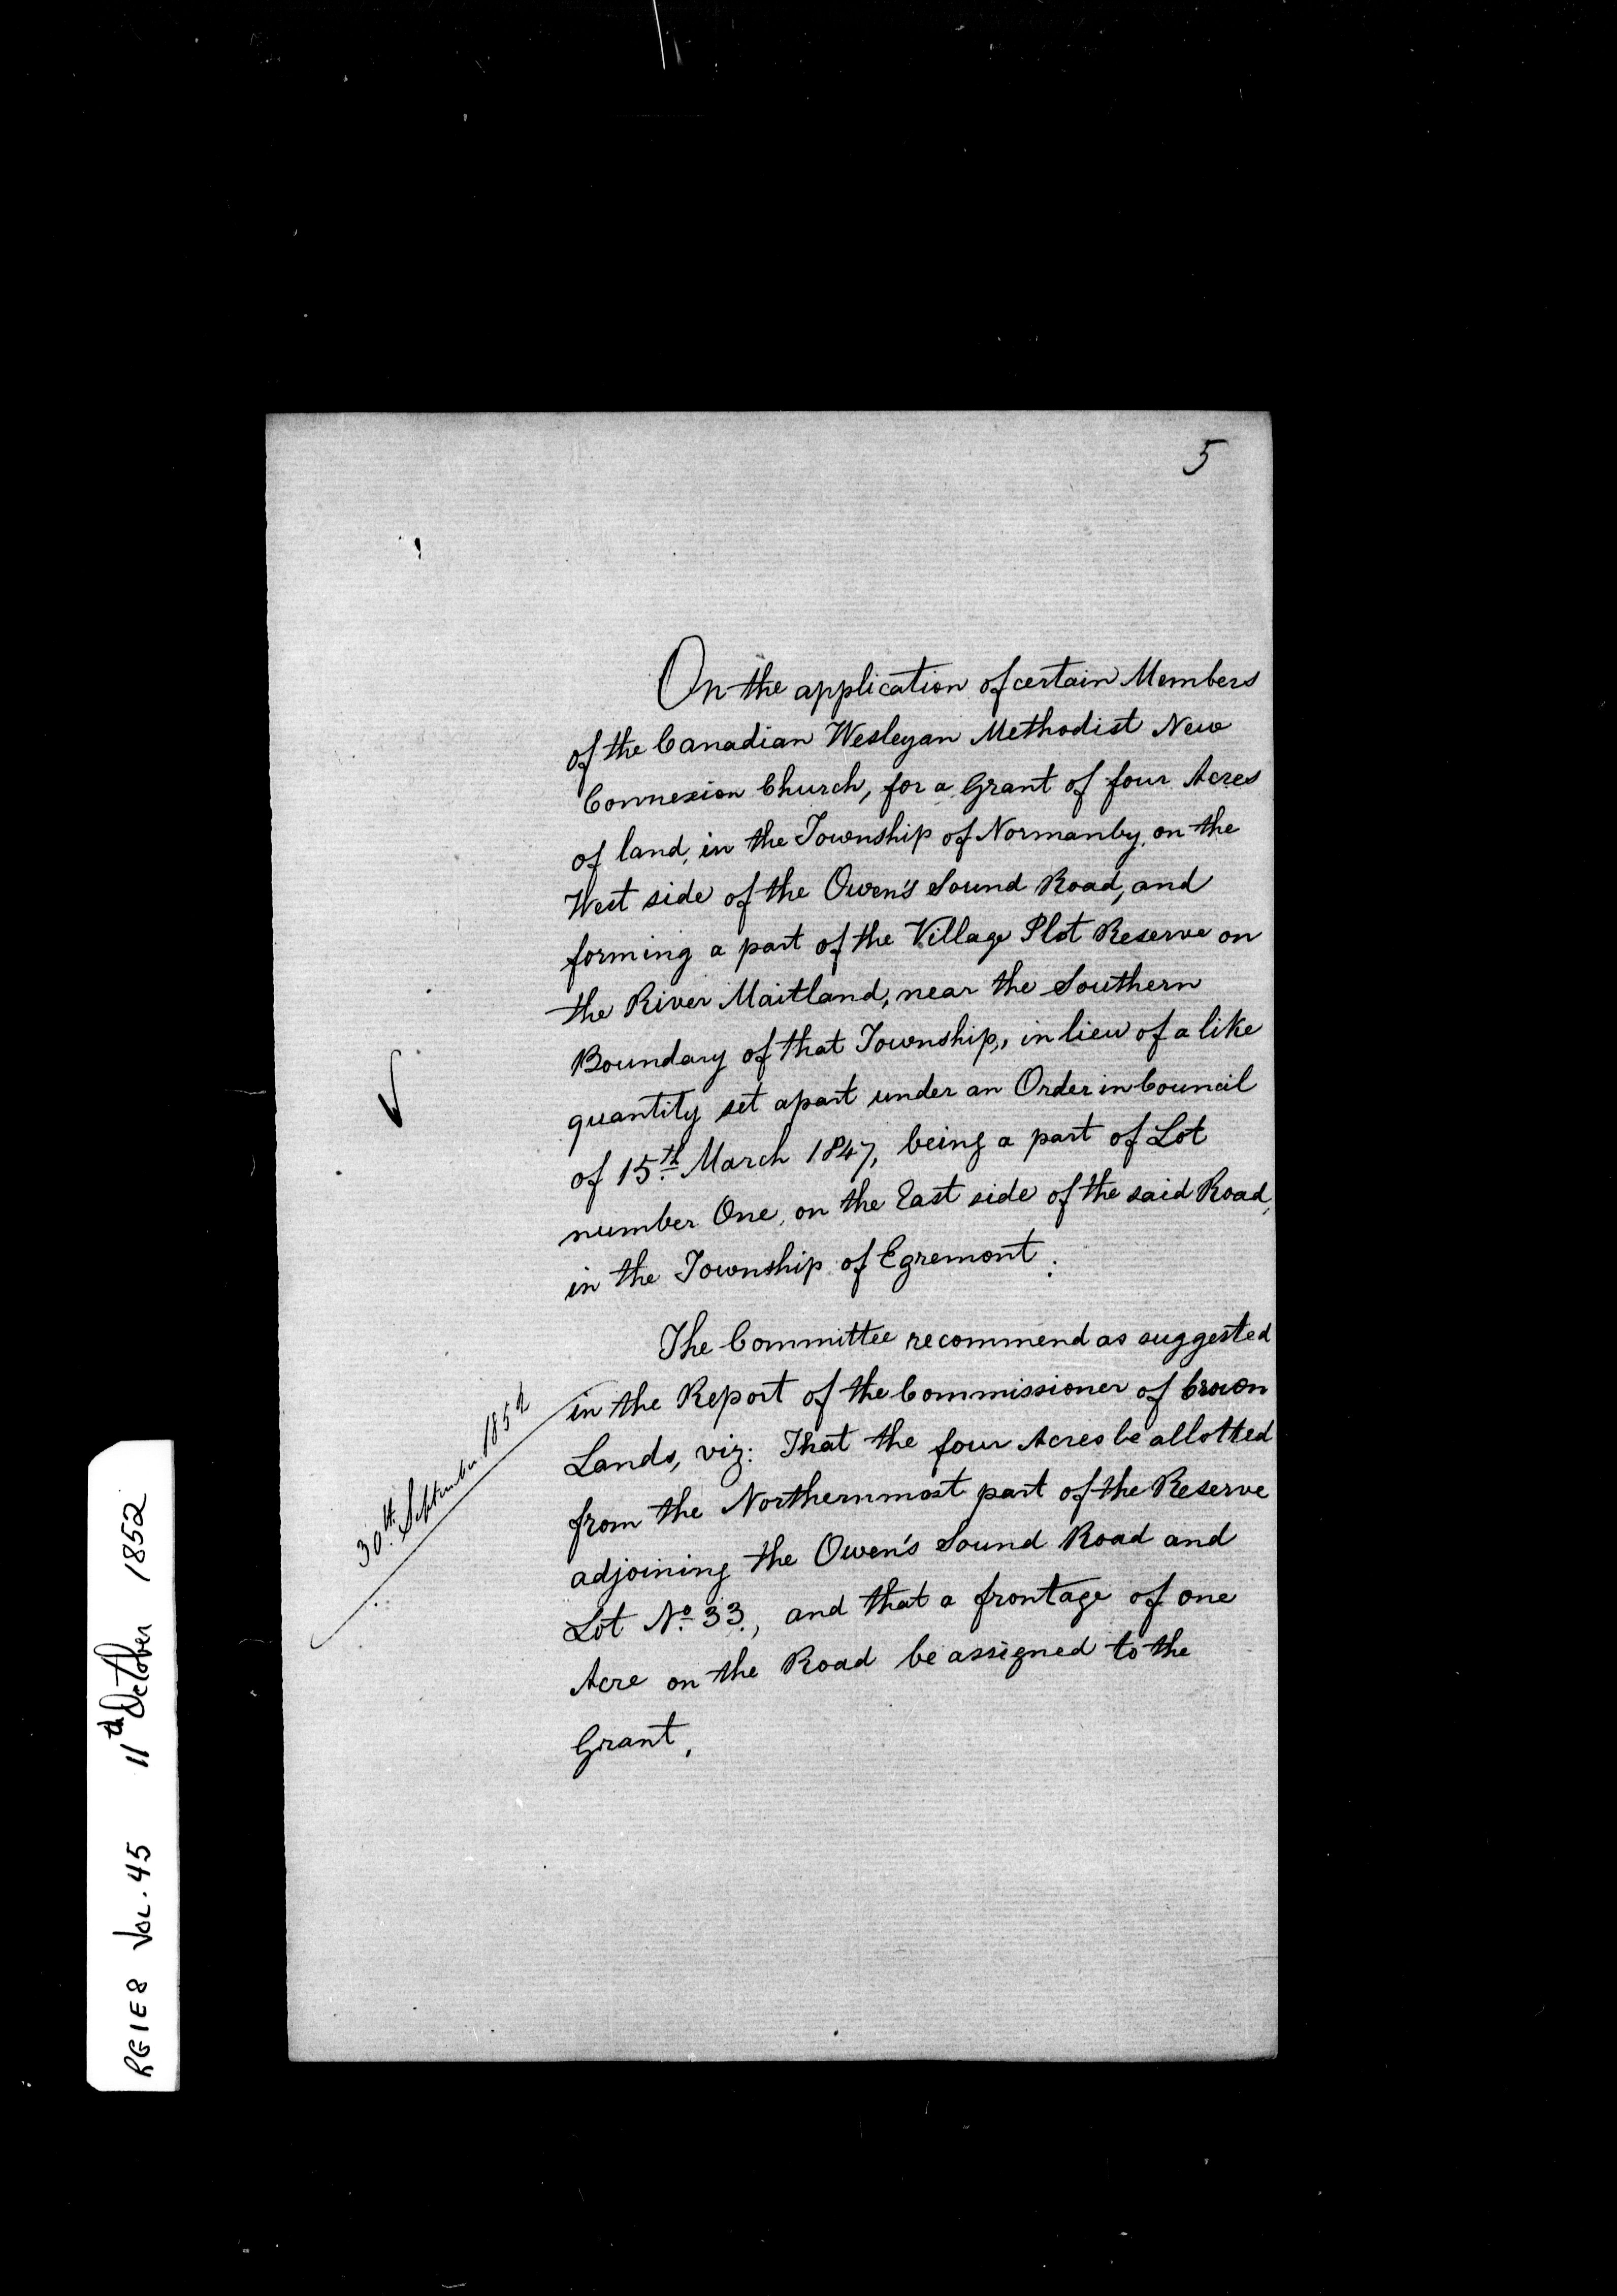 5
On the application of certain Members
of the Canadian Wesleyan Methodist New
Connexion Church, for a Grant of four Acres
of land, in the Township of Normanby, on the
West side of the Owen's Sound Road, and
forming a part of the Village Plot Reserve on
the River Maitland, near the Southern
Boundary of that Township, in lieu of a like
quantity set apart under an Order in Council
of 15th March 1847, being a part of Lot
number One, on the East side of the said Road,
in the Township of Egremont.
The Committee recommend as suggested
in the Report of the Commissioner of Crown
Lands, viz: That the four Acres be allotted
from the Northernmost part of the Reserve
adjoining the Owen's Sound Road and
Lot No. 33., and that a frontage of one
Acre on the Road be assigned to the
Grant.
30th September 1852
RG1E8 VOL. 45 11th October 1852